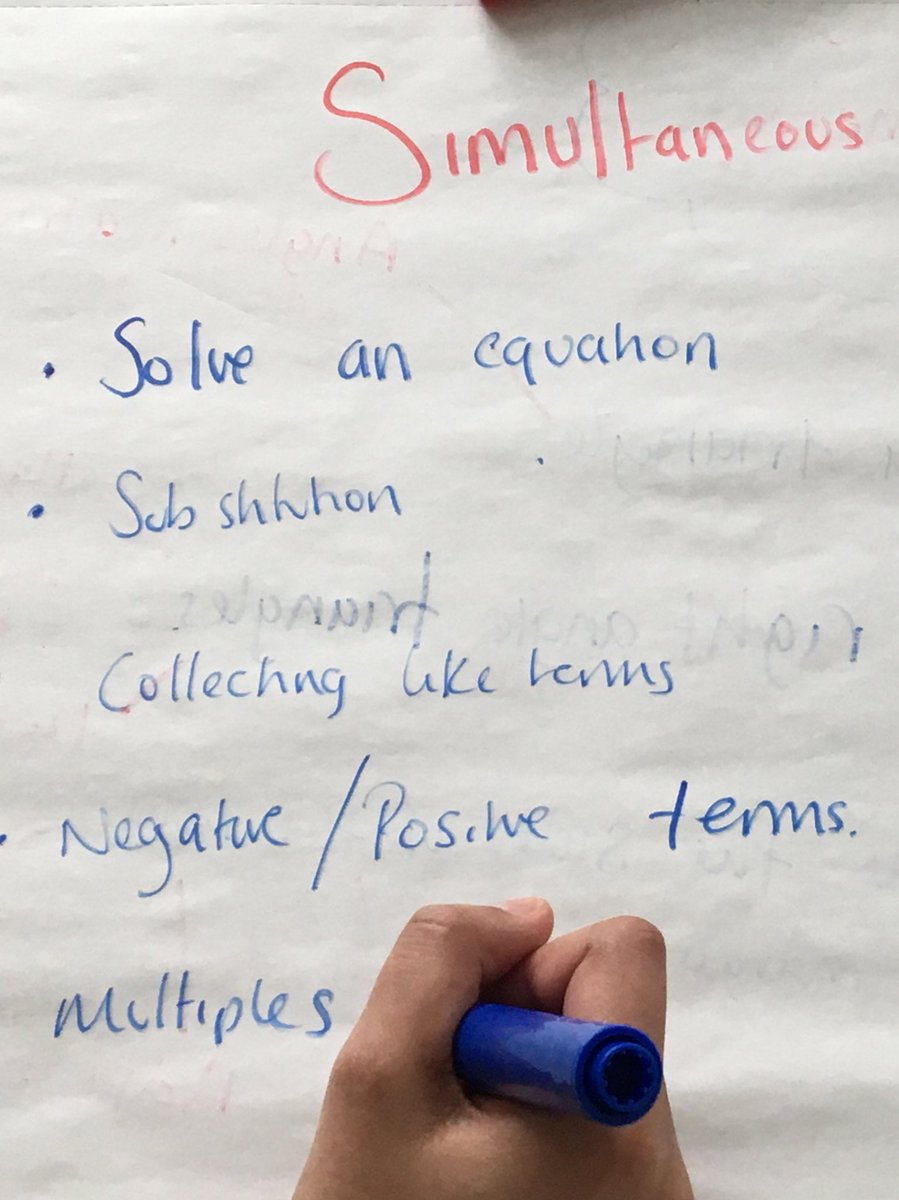 Simultaneous
• Solve an equation
• Substitution
Collecting like terms
• Negative / Positive terms.
Multiples